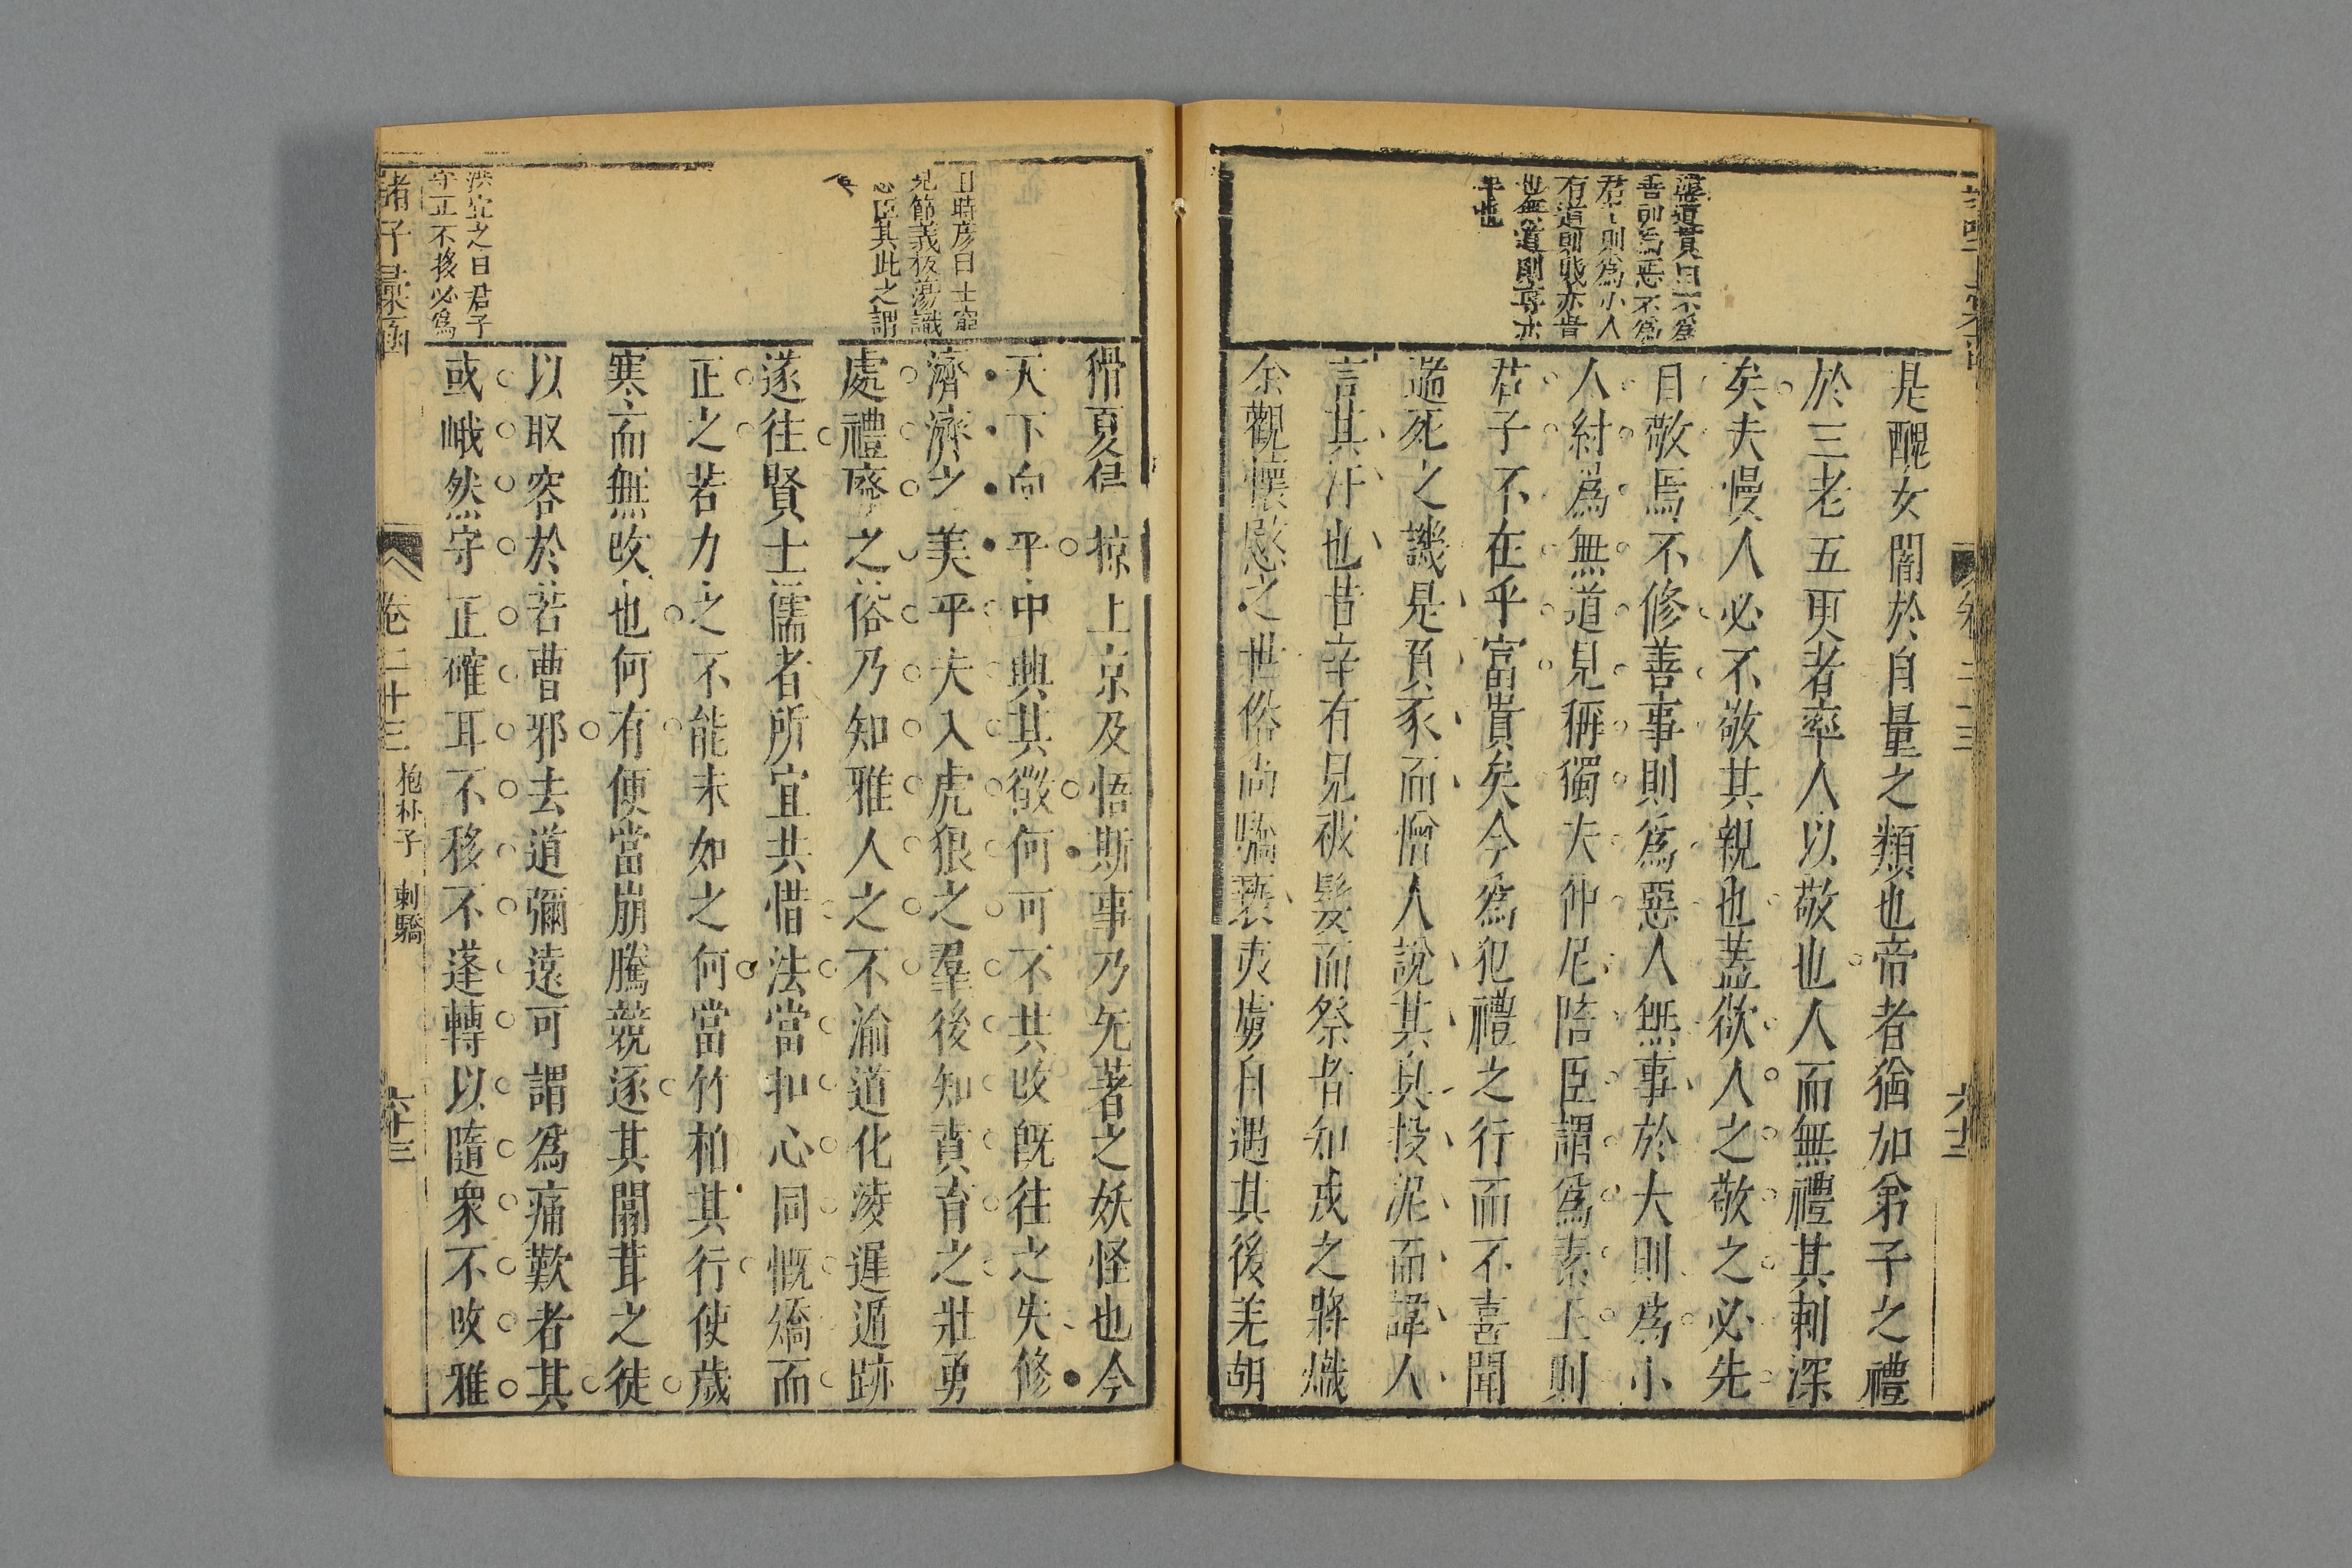 是醜女闇於自量之類也帝者猶加弟子之禮
於三老五更者率人以敬也人而無禮其刺深
矣夫慢人必不敬其親也蓋欲人之敬之必先
自敬焉不修善事則爲惡人無事於大則爲小
人紂爲無道見稱獨夫仲尼陪臣謂爲素王則
君子不在乎富貴矣今爲犯禮之行而不喜聞
遄死之譏是負豕而憎人說其臭投泥而諱人
言其汙也昔辛有見被髮而祭者知戎之將熾
余觀懷愍之世俗尚驕䙝夷虜自遇其後羌胡
猾夏侵掠上京及悟斯事乃先著之妖怪也今
天下向平中興其徵何可不共改旣往之失修
濟濟之美乎夫入虎狼之羣後知賁育之壯勇
處禮廢之俗乃知雅人之不渝道化凌遲遁跡
遂往賢士儒者所宜共惜法當扣心同慨矯而
正之若力之不能未如之何當竹柏其行使歲
寒而無改也何有便當崩騰競逐其闒茸之徒
以取容於若曹邪去道彌遠可謂爲痛歎者其
或峨然守正確耳不移不蓬轉以隨衆不改雅
道貫曰不爲
善則爲惡不爲
君子則爲小人
有道則賤亦貴
無道則尊亦
平也
曰時彦曰士窮
見節義板蕩識
臣其此之謂
洪宜之曰君子
守正不移必爲
諸子彙函
卷二十三
抱朴子
刺驕
六十三